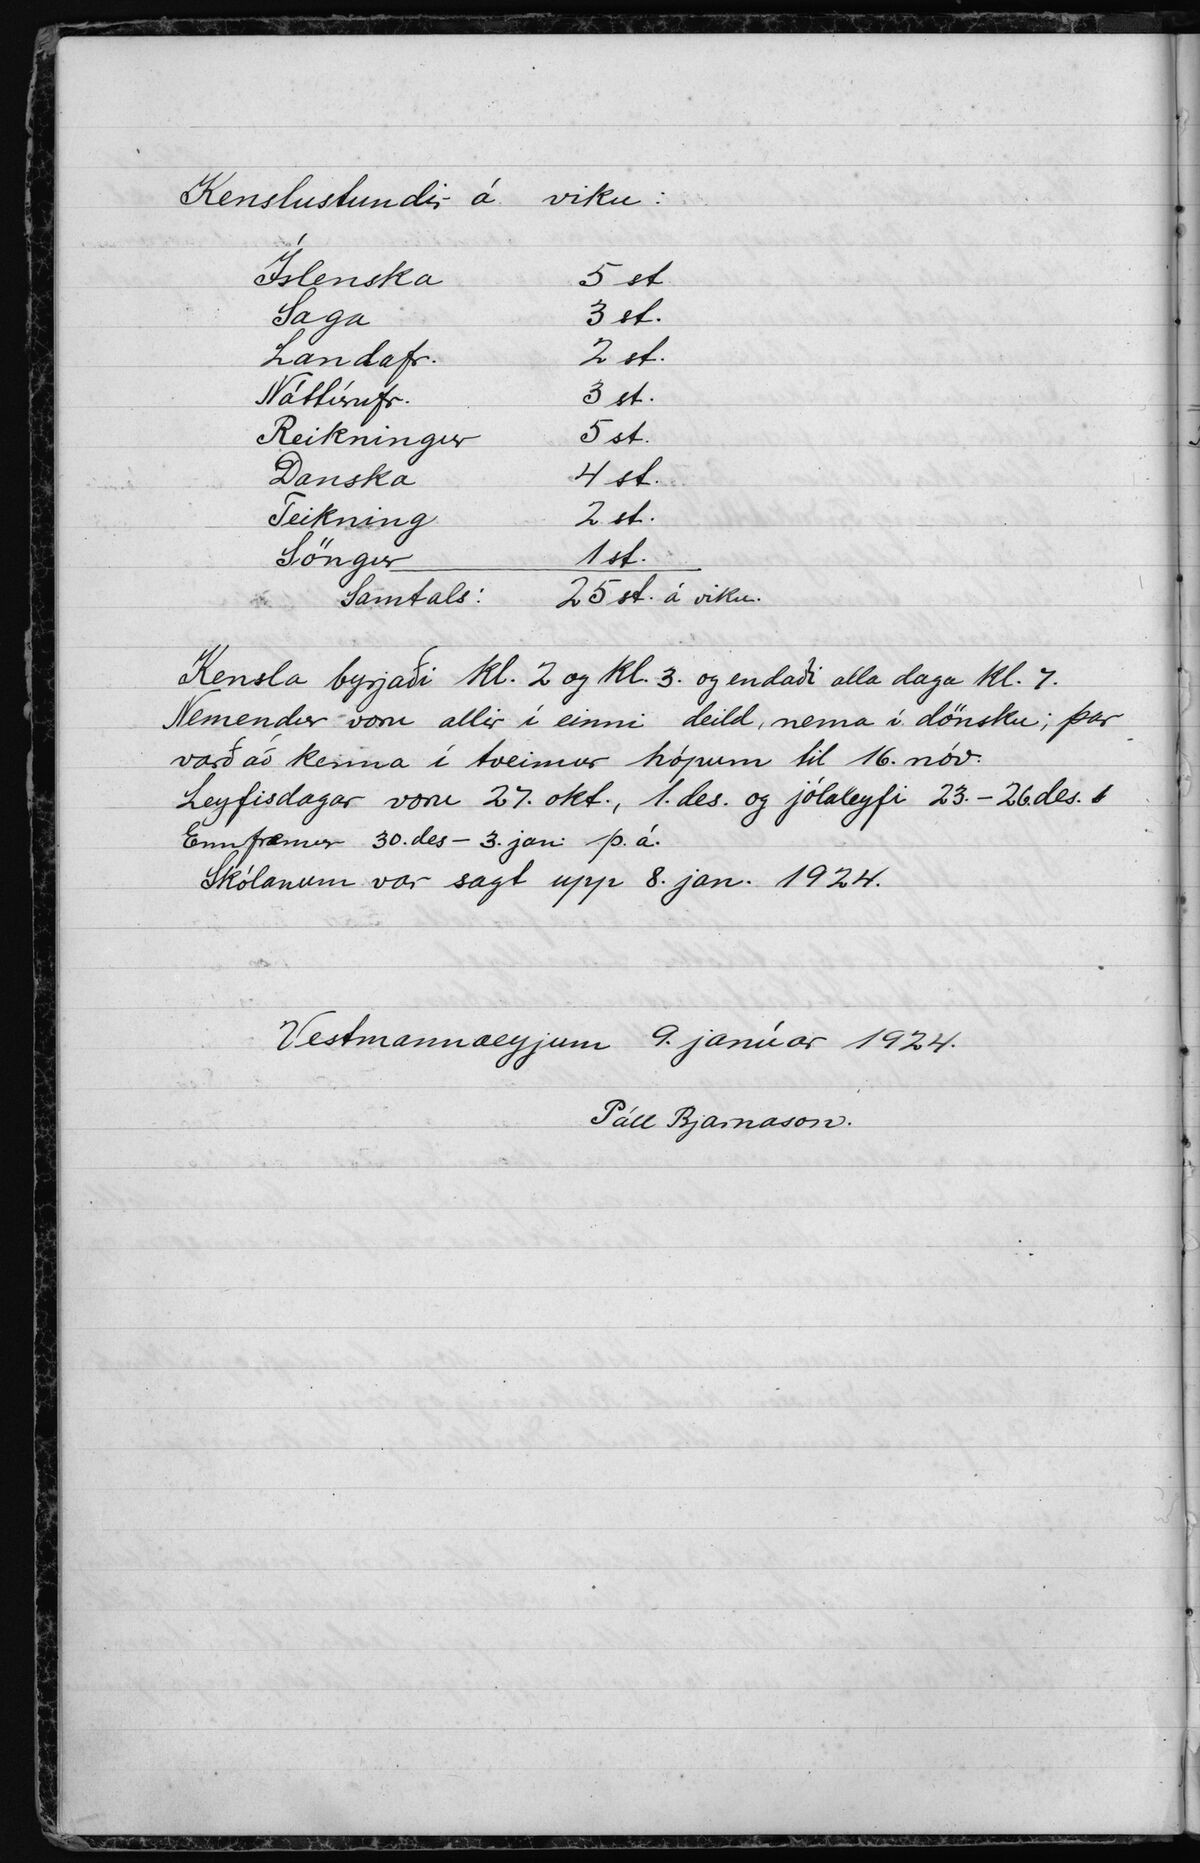 Kenslustundir á viku:
Íslenska 5 st
Saga 3 st.
Landafr. 2 st.
Náttúrufr. 3 st.
Reikningur 5 st.
Danska 4 st.
Teikning 2 st.
Söngur 1 st.
Samtals: 25 st. á viku.
Kensla byrjaði kl. 2 og kl. 3. og endaði alla daga kl. 7.
Nemendur voru allir í einni deild, nema í dönsku; þar
varð að kenna í tveimur hópum til 16. nóv.
Leyfisdagar voru 27. okt., 1. des. og jólaleyfi 23. – 26. des.
Ennfremur 30. des – 3. jan. þ. á.
Skólanum var sagt upp 8. jan. 1924.
Vestmannaeyjum 9. janúar 1924.
Páll Bjarnason.